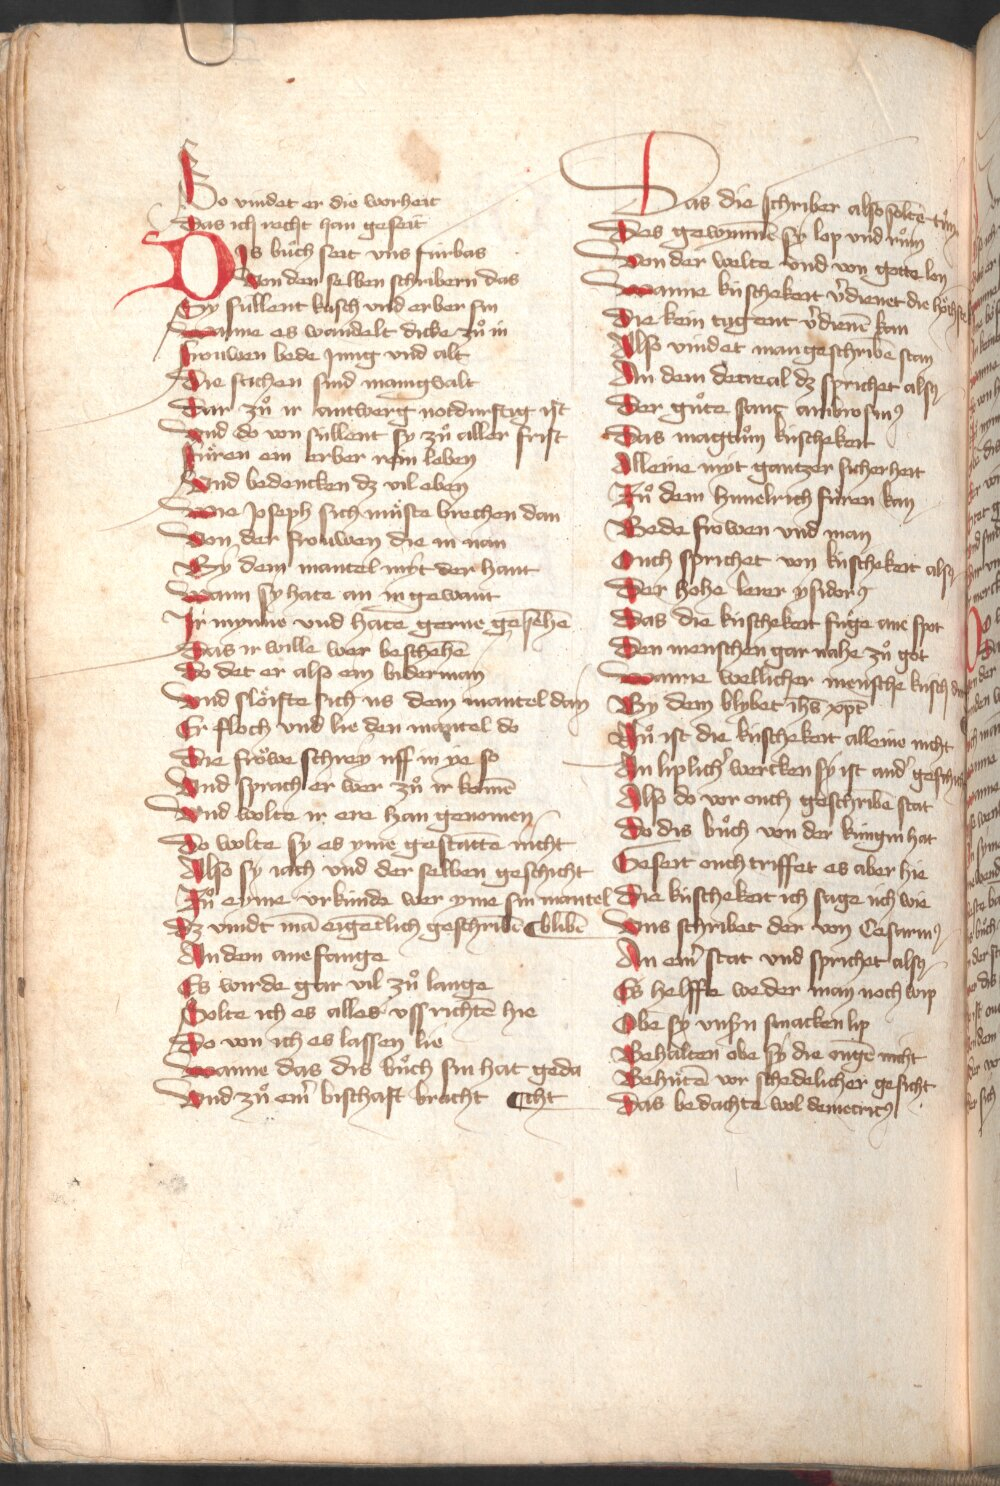 So vindet er die worheit
Das ich recht han geseit
Dis buͦch seit vns fúrbas
Von den selben schribern das
Sy súllent kúsch vnd erber sin
Wanne es wandelt dicke zuͦ in
Frouwen bede Jung vnd alt
Die sachen sind manigualt
Dar zuͦ ir antwerg notdurftig ist
Vnd do von súllent sy zuͦ aller frist
Fuͤren ein erber rein leben
Vnd bedencken dz vil eben
Wie Joseph sich muͤste brechen dan
Von der frouwen die in nan
By dem mantel mýt der hant
Wann sy hate an in gewant
Ir mynne vnd hate gerne gesehē
Das ir wille wer beschehē
Do det er also ein biderman
Vnd sloͤifte sich us dem mantel dan
Er floch vnd lie den mantel do
Die froͤwe schrey uff in ye so
Vnd sprach er wer zuͦ ir komē
Vnd wolte ir ere han genomen
Do wolte sy es yme gestatte nicht
Also sy iach vnd der selben geschicht
Zuͦ eyme vrkúnde wer yme sin mantel
Dz vindt mā eigētlich geschribē ¶ blibē
An dem ane fange
Es wurde gar vil zuͦ lange
Solte ich es alles vss richtē hie
Do von ich es lassen lie
Wanne das dis buͦch sin hat geda
Vnd zuͦ eim̄ bischaft bracht ¶ cht
Das die schriber also soltē tuͦn
Des gewinnē sy lop vnd ruͦm
Von der welte vnd von gotte lon
Wanne kúschekeit v̄dienet die hoͤhste
Die kein tugent v̄dienē kan
Also vindet man geschribē stan
In dem decreal dz sprichet alsꝰ
Der guͦte sant ambrosiuꝰ
Das magtuͦm kúschekeit
Alleine mýt gantzer sicherheit
Zuͦ dem himelrich fuͤren kan
Bede frowen vnd man
Ouch sprichet von kúschekeit alsꝰ
Der hohe lerer ysidorꝰ
Das die kúschekeit fuͤge ane spot
Den menschen gar nahe zuͦ got
Wanne wellicher mensche kúsch
By dem blybet ihs xp̄c
Nuͦ ist die kúschekeit alleine nicht
An liplich̄ wercken sy ist and̄
Also do vor ouch geschribē stat
Do dis buͦch von der kúngin hat
Geseit ouch triffet es aber hie
Die kúschekeit ich sage úch wie
Vns schribet der von Cesariuꝰ
An eim̄ stat vnd sprichet alsꝰ
Es helffe weder man noch wip
Obe sy vnsn̄ smacken lip
Behalten obe sy die ougē nicht
Behuͤtē vor schedelicher gesicht
Das bedachte wol demetriꝰ